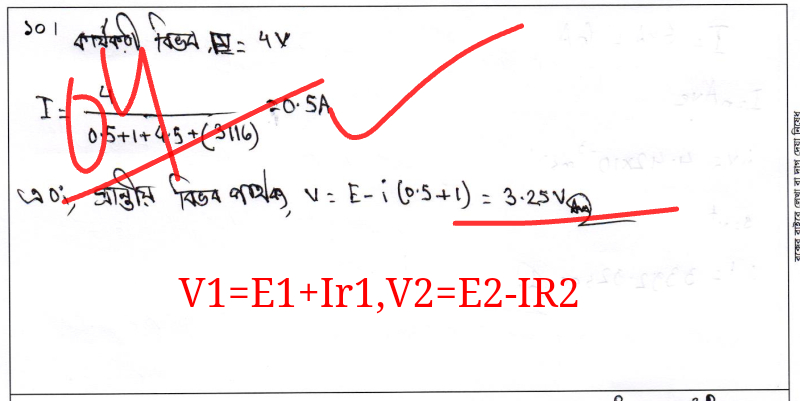 ১০। কার্যকরী বিভব, E = 4V
I = 4 / 0.5+1+4.5+(3||6) = 0.5A
এ০ঃ, প্রান্তীয় বিভব পার্থক্য, V = E - i (0.5+1) = 3.25V Ans
V1=E1+Ir1,V2=E2-IR2
বক্সের বাইরে লেখা বা দাগ দেয়া নিষেধ